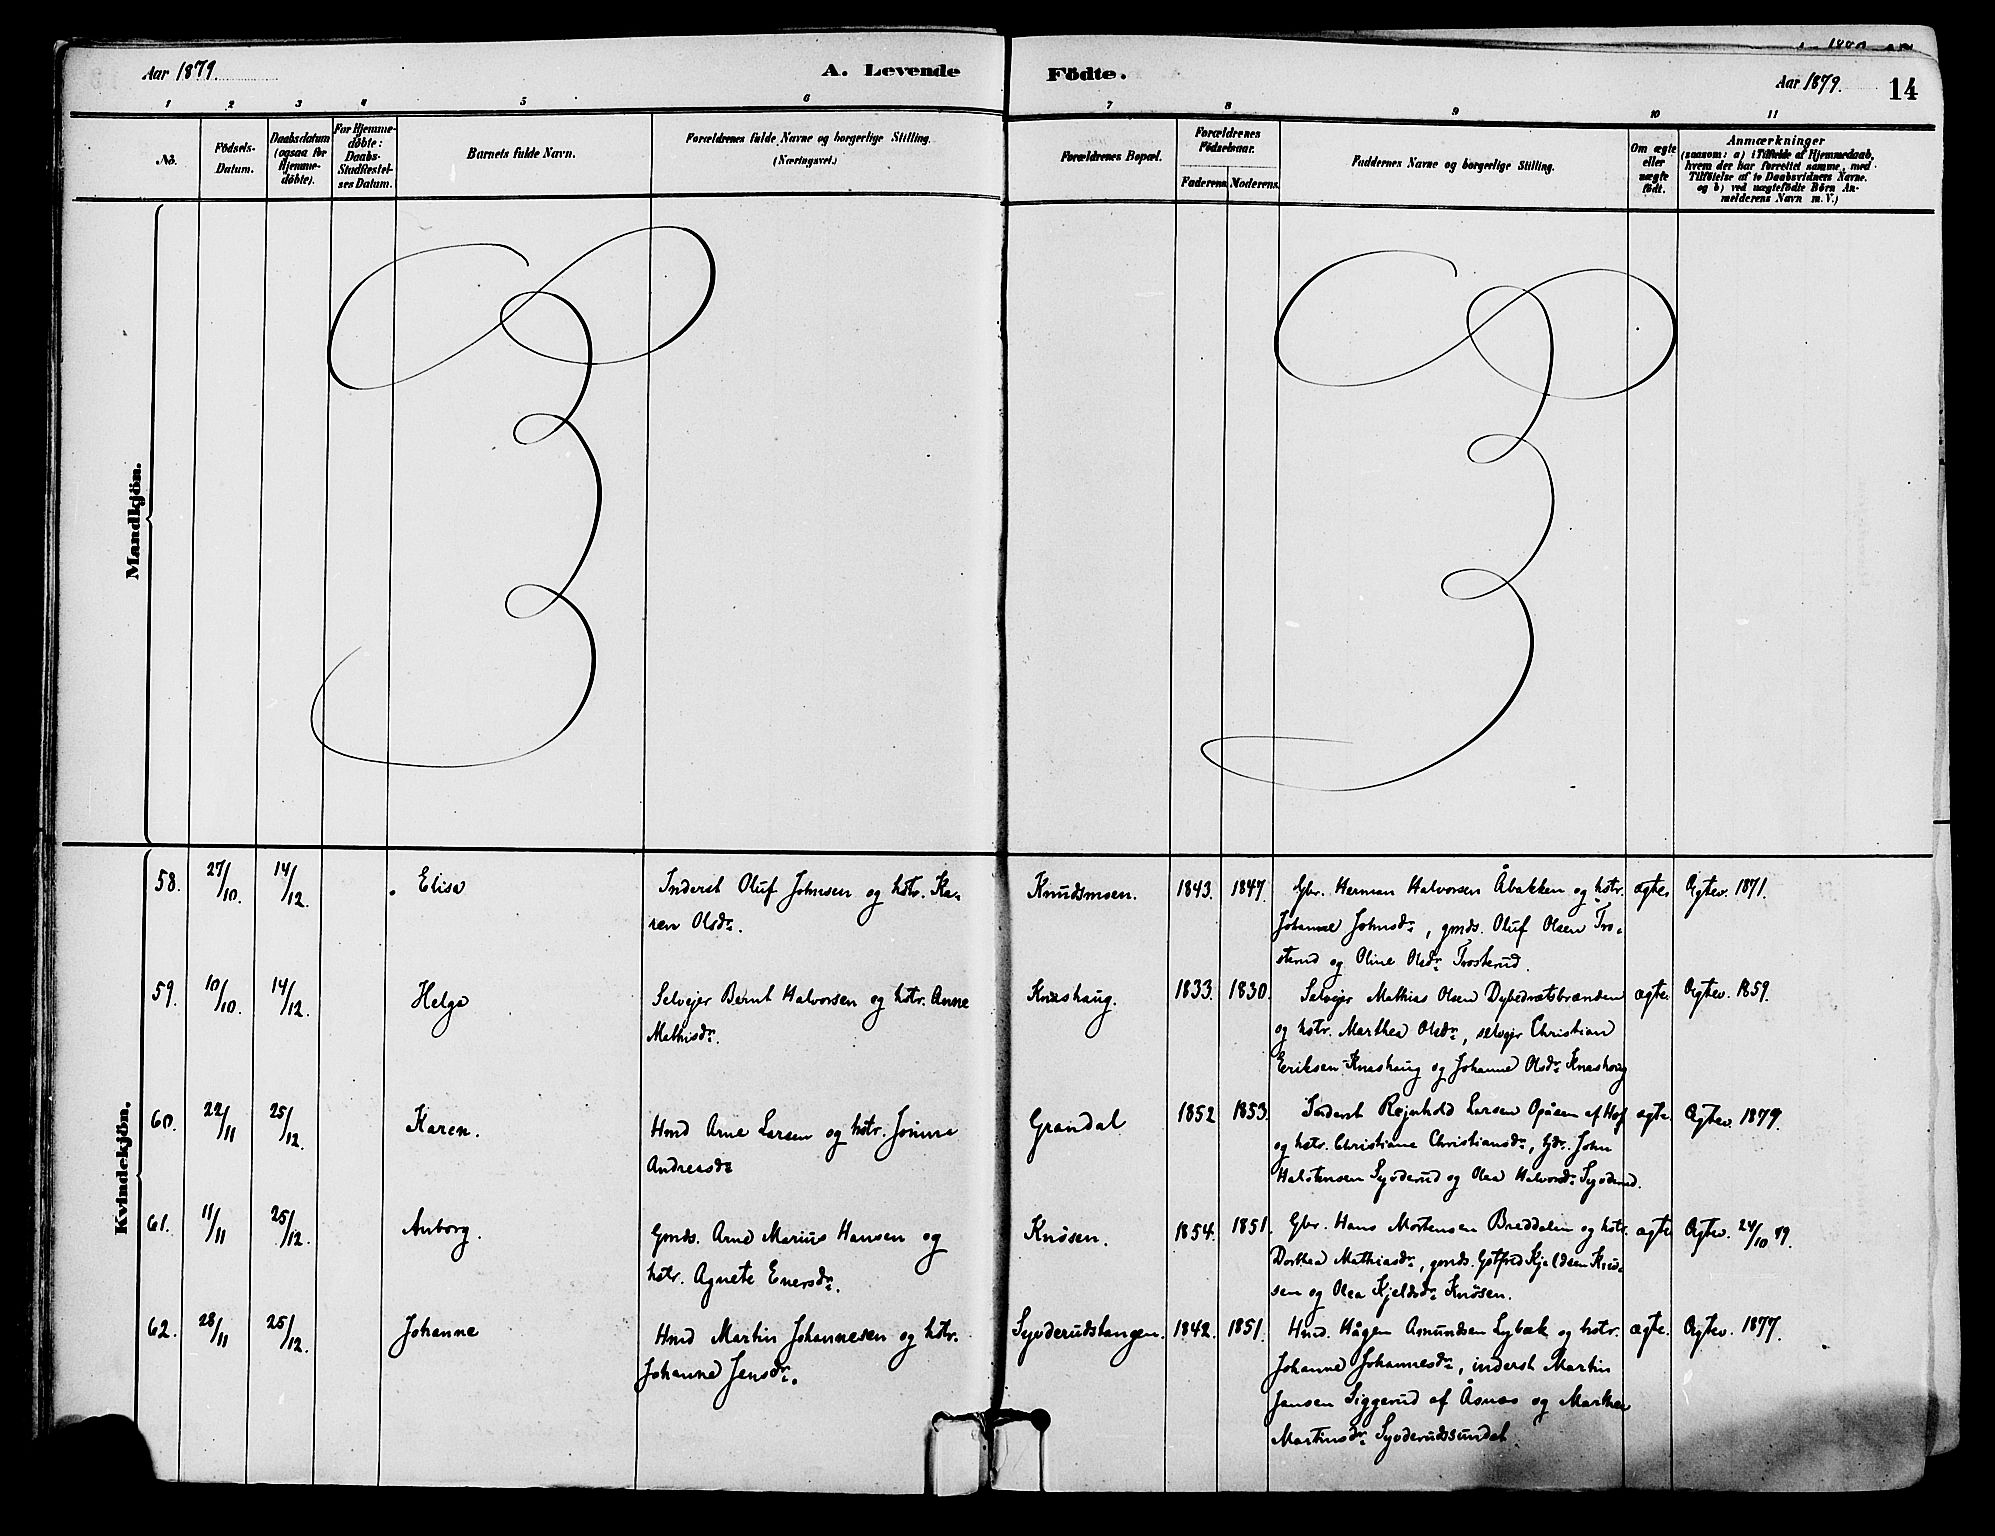 Aar 1879.
A. Levende Födte.
Aar 1879.
14
1 2 3 4 5 6 7 8 9 10 11
No.
Födsels-Datum.
Daabsdatum (ogsaa for Hjemme-döbte).
For Hjemme-döbte: Daabs-Stadfæstel-ses Datum.
Barnets fulde Navn.
Forældrenes fulde Navne og borgerlige Stilling.
(Næringsvei.)
Forældrenes Bopæl.
Forældrenes Födselsaar.
Faderens. Moderens.
Faddernes Navne og borgerlige Stilling.
Om ægte eller uægte födt.
Anmærkninger
(saasom: a) i Tilfælde af Hjemmedaab,
hvem der har forrettet samme, med
Tilföielse af to Daabsvidners Navne.
og b) ved uægtefödte Börn An-
melderens Navn m. V.)
Mandkjön.
Kvindekjön.
58. 27/10. 14/12. Elise
Inderst Oluf Johnsen og hstr. Ka-
ren Olsdr.
Knudsmoen. 1843. 1847.
Gbr. Herman Halvorsen Åbakken og hstr.
Johanne Johnsdr, gmds. Oluf Olsen Tro-
sterud og Oline Olsdr Trosterud.
ægte. Ægtev. 1871.
59. 10/10. 14/12. Helga
Selvejer Bernt Halvorsen og hstr. Anne
Mathisdr.
Knashaug. 1833. 1830.
Selvejr Mathias Olsen
og hstr. Marthea Olsdr, selvejr Christian
Eriksen Knashaug og Johanne Olsdr Knashaug
ægte. Ægtev. 1859.
60. 22/11 25/12. Karen.
Hmd Arne Larsen og hstr.
Andreasdr
Grandal 1852 1853.
Inderst Rejnhold Larsen Opåsen af Hof
og hstr. Christiane Christiansdr, John
Halstensen og Olea Halvorsdr
ægte. Ægtev. 1879.
61. 11/11 25/12. Anborg.
Gmds. Arne Marius Hansen og
hstr. Agnete Enersdr.
Knösen. 1854. 1851.
Gbr. Hans Mortensen Breddalen og hstr.
Dorthea Mathiasdr, gmds. Kjeldsen Knö-
sen og Olea Kjeldsdr Knösen.
ægte Ægtev. 24/10 79.
62. 28/11 25/12. Johanne
Hmd Martin Johannesen og hstr.
Johanne Jensdr.
Syverudstangen. 1842. 1851.
Hmd. Hågen Asmundsen Lybæk og hstr.
Johanne Johannesdr, inderst Martin
Jensen Siggerud af Åsnes og Marthea
Martinsdr Syverudssundet
ægte. Ægtev. 1877.